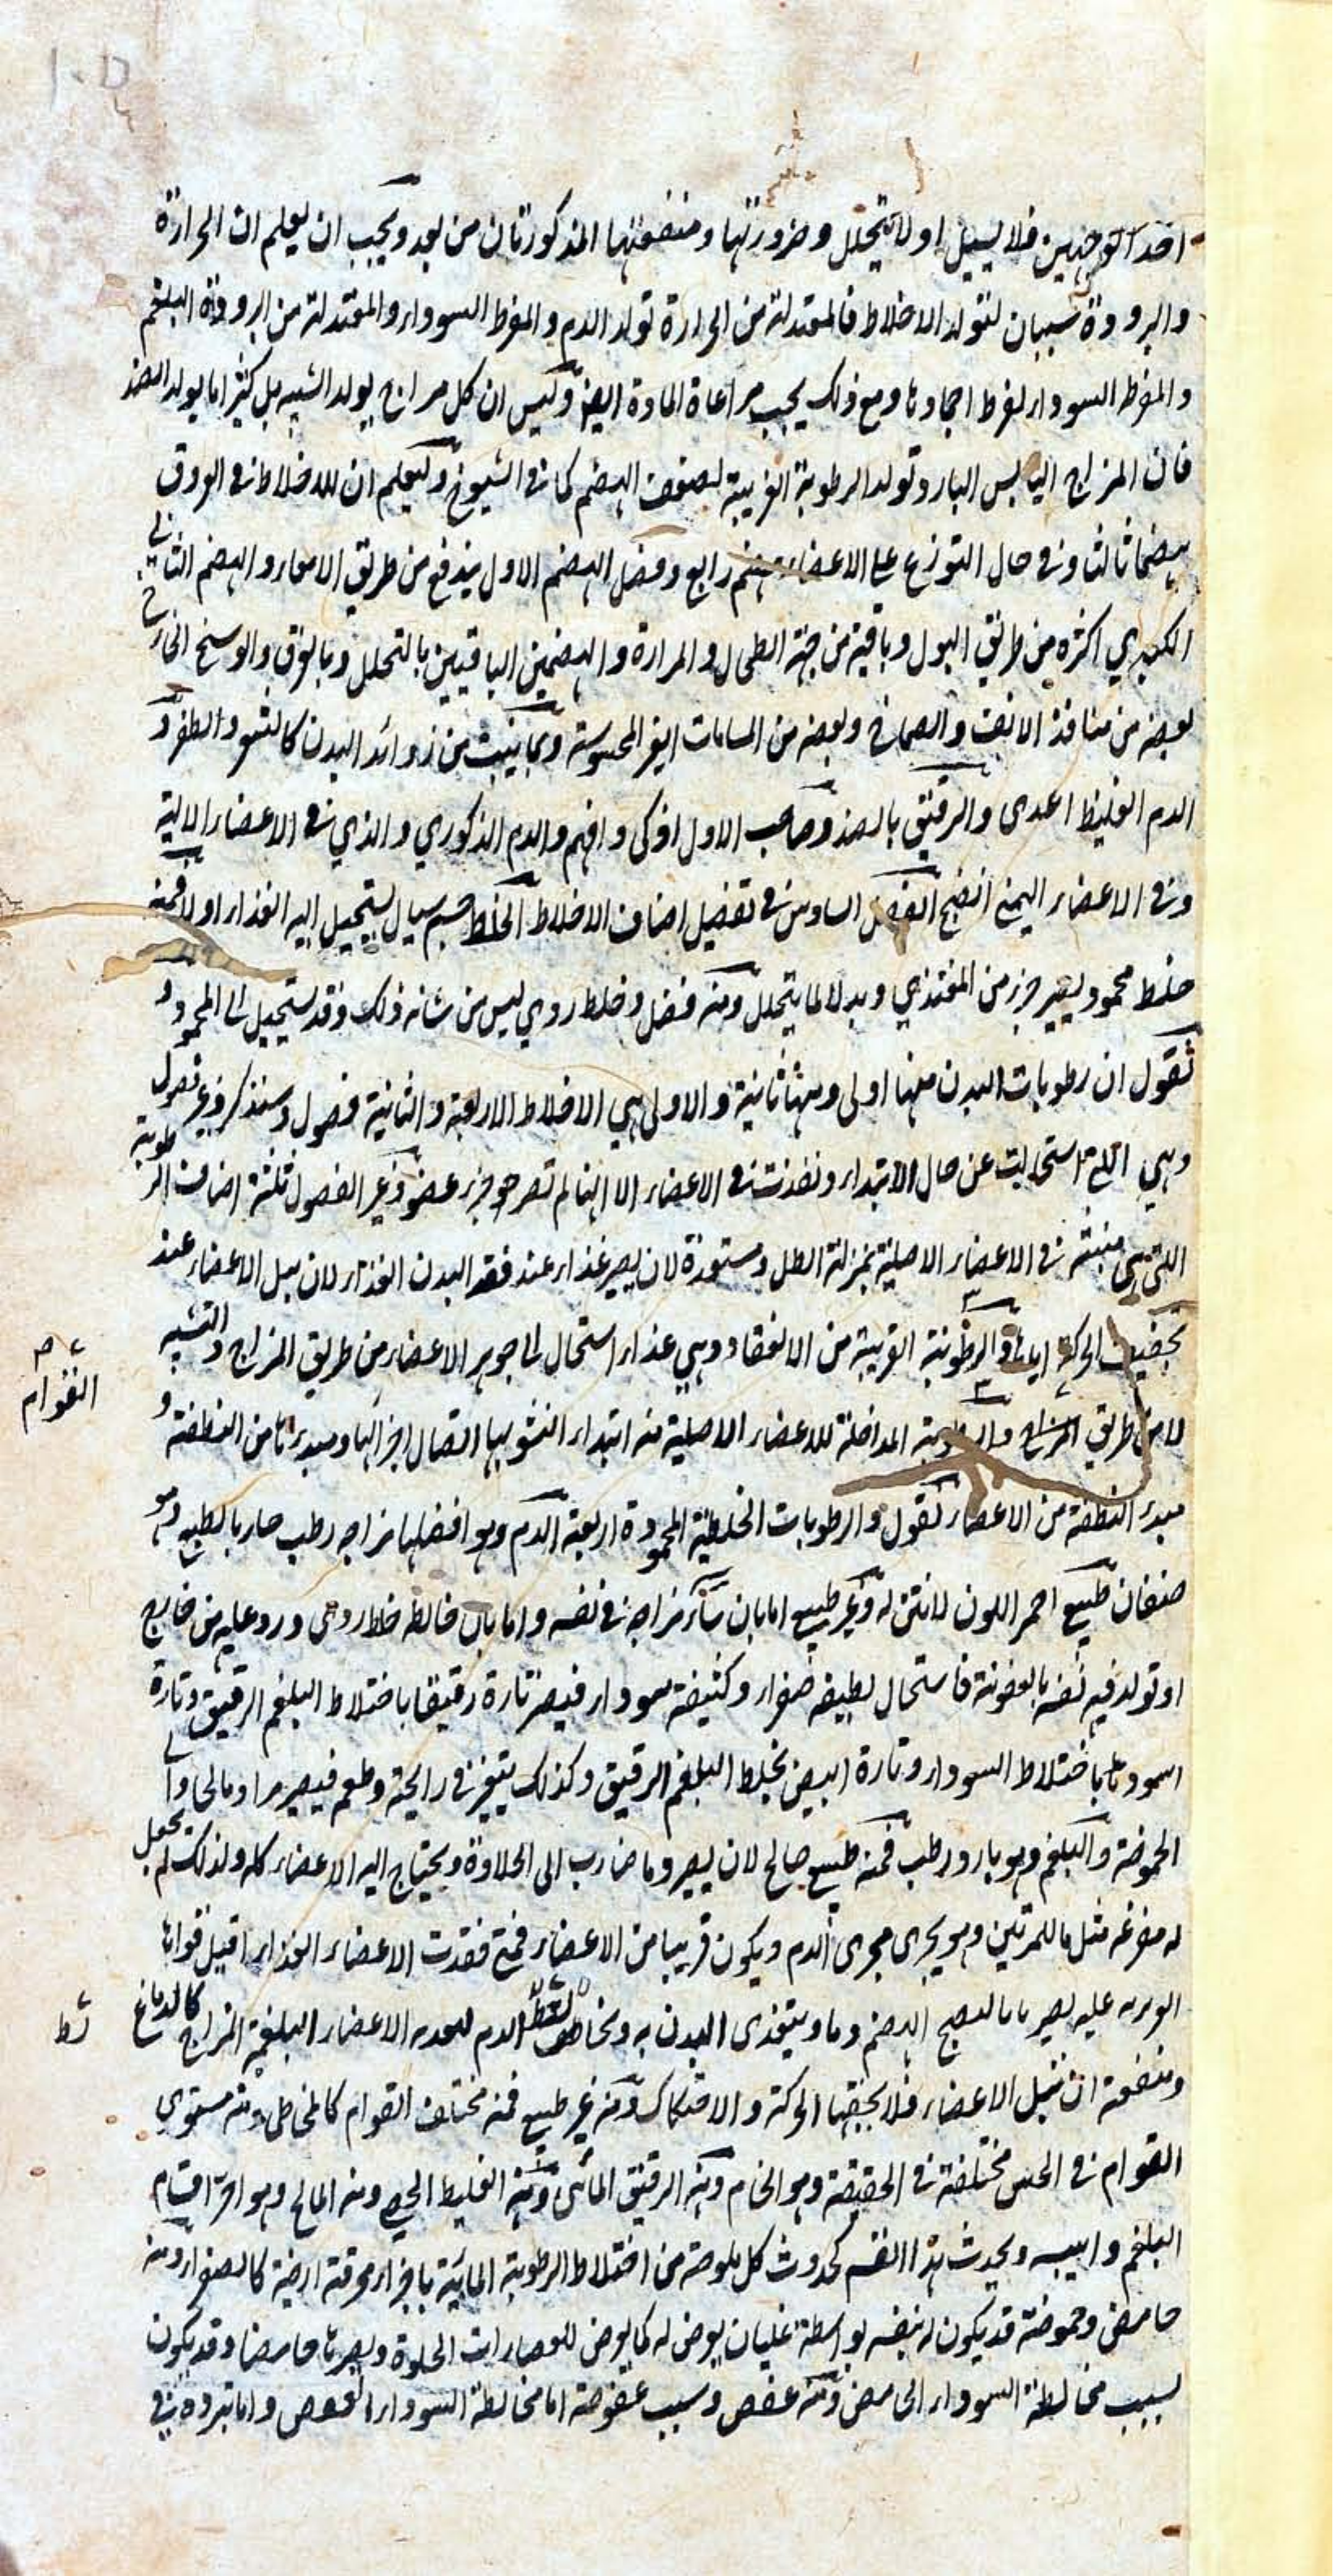 احد الوجهين فلا يسيل اولا يتحلل وضرورتها ومنفعتها المذكورتان من بعد ويجب ان يعلم ان الحرارة
والبرودة سببان لتولد الاخلاط فالمعتدلة من الحرارة تولد الدم والمفرط السوداء والمعتدلة من البرودة البلغم
والمفرط السوداء لفرط اجمادها ومع ذلك يجب مراعاة المادة ايضا وليس ان كل مزاج يولد الشبيه بل كثيرا ما يولد الضد
فان المزاج اليابس البارد تولد الرطوبة الغريبة لضعف الهضم كما في الشيوخ وليعلم ان للاخلاط في العروق
هضما ثالثا وفي حال التوزع على الاعضاء هضم رابع وفضل الهضم الاول يندفع من طريق الامعاء والهضم الثاني
الكبدي اكثره من طريق البول وباقيه من جهة الطحال والمرارة والهضمين الباقيين بالتحلل وبالعرق والوسخ الخارج
بعضه من منافذ الانف والصماخ وبعضه من المسامات الغير المحسوسة وبما ينبت من زوائد البدن كالشعر والظفر و
الدم الغليظ اغذى والرقيق بالضد وصاحب الاول اذكى وافهم والدم الذكوري والذي في الاعضاء العالية
وفي الاعضاء اليمنى انضج الفصل السادس في تفصيل اصناف الاخلاط الخلط جسم سيال يستحيل اليه الغذاء اولا فمنه
خلط محمود يصير جزء من المغتذي وبدلا لما يتحلل ومنه فضل وخلط ردي ليس من شانه ذلك وقد يستحيل الى المحمود و
نقول ان رطوبات البدن منها اولى ومنها ثانية والاولى هي الاخلاط الاربعة والثانية فضول وسنذكر وغير فضول
وهي التي استحالت عن حال الابتداء ونفذت في الاعضاء الا انها لم تصر جزء عضو وغير الفضول ثلثة اصناف الرطوبة
التي هي منبثة في الاعضاء الاصلية بمنزلة الطل ومستعدة لان يصير غذاء عند فقد البدن الغذاء لان يبل الاعضاء عند
تجفيف الحركة اياها والرطوبة القريبة من الانعقاد وهي غذاء استحال الى جوهر الاعضاء من طريق المزاج والتشبيه
لا من طريق المزاج والرطوبة المداخلة للاعضاء الاصلية منه ابتداء النشو بها اتصال اجزائها ومبدؤها من النطفة و
مبدء النطفة من الاعضاء نقول والرطوبات الخلطية المحمودة اربعة الدم وهو افضلها مزاجه رطب حار بالطبع وهو
صنفان طبيعي احمر اللون لا نتن له وغير طبيعي اما بان ساء مزاجه في نفسه واما بان خالطه خلط ردي ورد عليه من خارج
او تولد فيه نفسه بالعفونة فاستحال لطيفه صفراء وكثيفه سوداء فيصير تارة رقيقا باختلاط البلغم الرقيق وتارة
اسود باختلاط السوداء وتارة ابيض بخلط البلغم الرقيق وكذلك يتغير في رايحته وطعمه فيصير مرا ومالحا والى
الحموضة والبلغم وهو بارد رطب فمنه طبيعي صالح لان يصير دما ضارب الى الحلاوة ويحتاج اليه الاعضاء كله ولذلك لم يجعل
له مفرغة مثل ما للمرتين وهو يجري مجرى الدم ويكون قريبا من الاعضاء فمتى فقدت الاعضاء الغذاء اقبل قواها
عليه الهضم ودما ويتغذى البدن به الدم الاعضاء البلغمية المزاج كالدماغ
ومنفعته ان تبل الاعضاء فلا يجففها الحركة والاحتكاك ومنه غير طبيعي فمنه مختلف القوام كالمخاطي ومنه مستوي
القوام في الحس مختلفة في الحقيقة وهو الخام ومنه الرقيق المائي ومنه الغليظ الجصي ومنه المالح وهو احر اقسام
البلغم وايبسه ويحدث هذا القسم كحدوث كل ملوحة من اختلاط الرطوبة المائية باجزاء محرقة ارضية كالصفراء ومنه
حامض وحموضته قد يكون له بنفسه بواسطة غليان يعرض له كما يعرض للعصارات الحلوة ويصيرها حامضا وقد يكون
بسبب مخالطة السوداء الحامض ومنه عفص وسبب عفوصته اما مخالطة السوداء العفص واما تبرده في
القوام